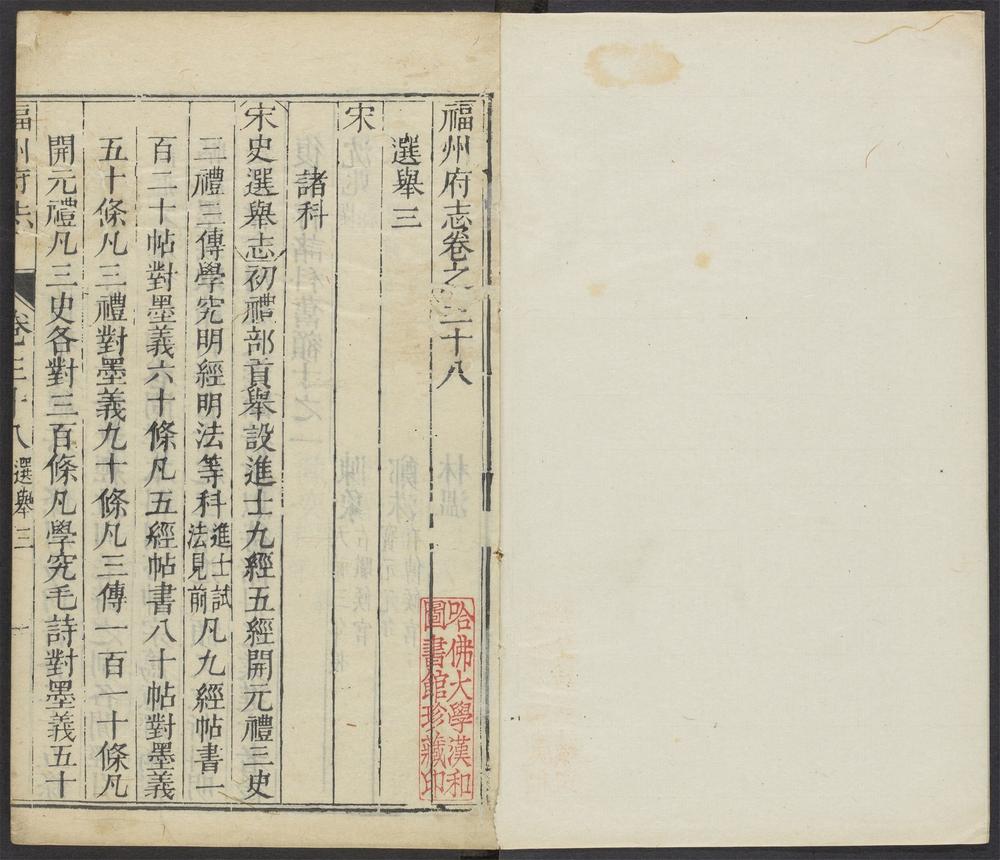 福州府志卷之三十八
選舉三
宋
諸科
宋史選舉志初禮部貢舉設進士九經五經開元禮三史
三禮三傳學究明經明法等科進士試法見前凡九經帖書一
百二十帖對墨義六十條凡五經帖書八十帖對墨義
五十條凡三禮對墨義九十條凡三傳一百一十條凡
開元禮凡三史各對三百條凡學究毛詩對墨義五十
福州府志 卷三十八 選舉三 一
哈佛大學漢和
圖書館珍藏印